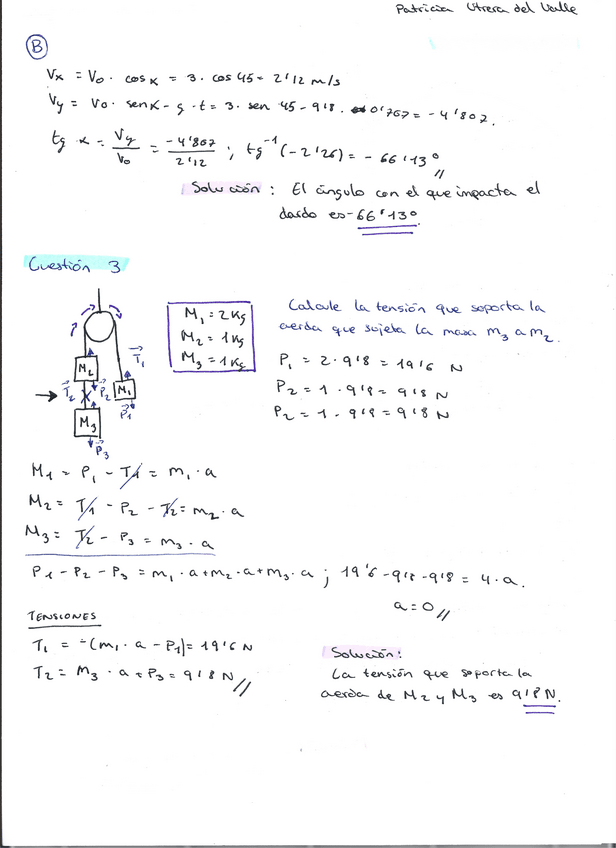 Patricia Utrera del Valle
B
Vx = Vo · cos α = 3 · cos 45 = 2'12 m/s
Vy = Vo · sen α - g · t = 3 · sen 45 - 9'8 · 0'767 = -4'807.
tg α = Vy/Vo = -4'807/2'12 ; tg⁻¹ (-2'26) = -66'13°
Solución : El ángulo con el que impacta el
dardo es -66'13°
Cuestión 3
M₁ = 2 Kg
M₂ = 1 Kg
M₃ = 1 Kg
Calcule la tensión que soporta la
cuerda que sujeta la masa m₃ a m₂.
P₁ = 2 · 9'8 = 19'6 N
P₂ = 1 · 9'8 = 9'8 N
P₂ = 1 · 9'8 = 9'8 N
M₂
T₁
T₂
P₂
M₁
P₁
M₃
P₃
M₁ = P₁ - T₁ = m₁ · a
M₂ = T₁ - P₂ - T₂ = m₂ · a
M₃ = T₂ - P₃ = m₃ · a
P₁ - P₂ - P₃ = m₁ · a + m₂ · a + m₃ · a ; 19'6 - 9'8 - 9'8 = 4 · a.
a = 0
TENSIONES
T₁ = -(m₁ · a - P₁) = 19'6 N
T₂ = m₃ · a + P₃ = 9'8 N
Solución:
La tensión que soporta la
cuerda de M₂ y M₃ es 9'8 N.